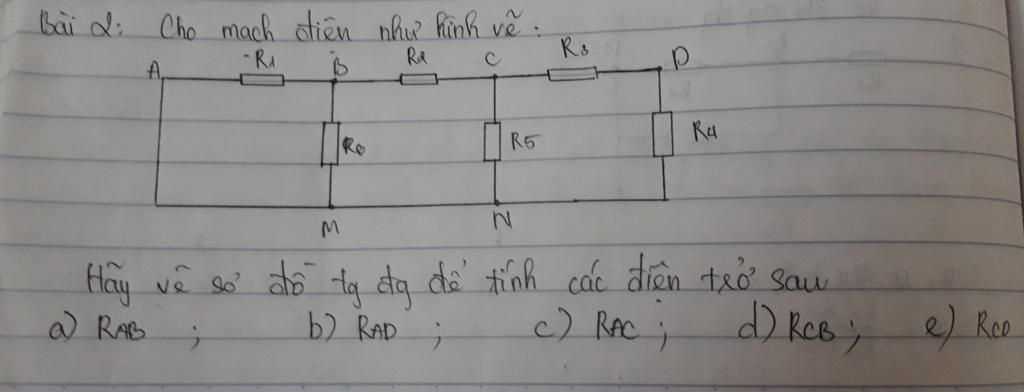 Bài 2: Cho mạch điện như hình vẽ:
A R1 B R2 C R3 D
R6 R5 R4
M N
Hãy vẽ sơ đồ tg đg để tính các điện trở sau
a) RAB ; b) RAD ; c) RAC ; d) RCB ; e) RCD